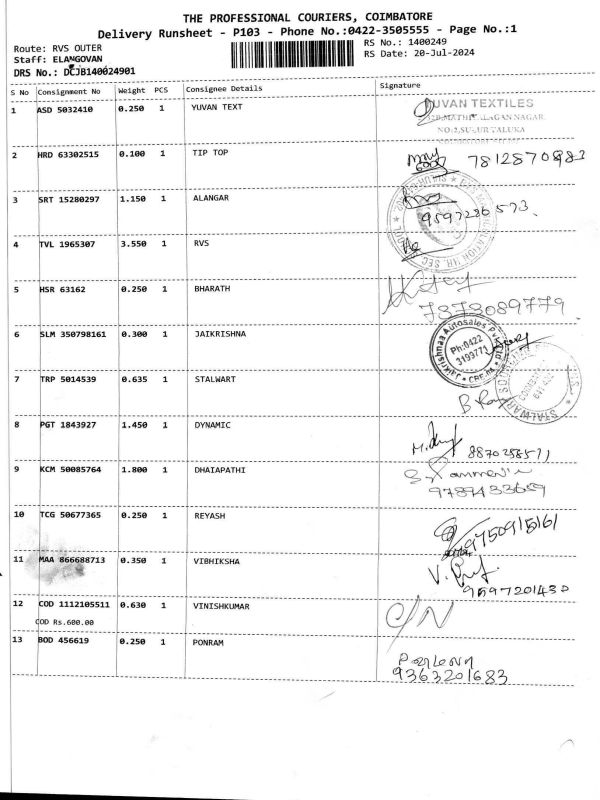 THE PROFESSIONAL COURIERS, COIMBATORE
Delivery Runsheet - P103 - Phone No.:0422-3505555 - Page No.:1
Route: RVS OUTER
RS No.: 1400249
Staff: ELANGOVAN
RS Date: 20-Jul-2024
DRS No.: DCJB140024901
S No Consignment No Weight PCS Consignee Details Signature
1 ASD 5032410 0.250 1 YUVAN TEXT
YUVAN TEXTILES
NO:2,SULUR TALUKA
2 HRD 63302515 0.100 1 TIP TOP 7812870983
3 SRT 15280297 1.150 1 ALANGAR 9597236573
4 TVL 1965307 3.550 1 RVS
5 HSR 63162 0.250 1 BHARATH
7373089779
6 SLM 350798161 0.300 1 JAIKRISHNA
Jaikrishnaa Autosales Pvt Ltd
Ph:0422
3199771
7 TRP 5014539 0.635 1 STALWART
8 PGT 1843927 1.450 1 DYNAMIC
9 KCM 50085764 1.800 1 DHAIAPATHI
9789433659
10 TCG 50677365 0.250 1 REYASH
11 MAA 866688713 0.350 1 VIBHIKSHA
9597201430
12 COD 1112105511 0.630 1 VINISHKUMAR C/N
COD Rs.600.00
13 BOD 456619 0.250 1 PONRAM
9363201683